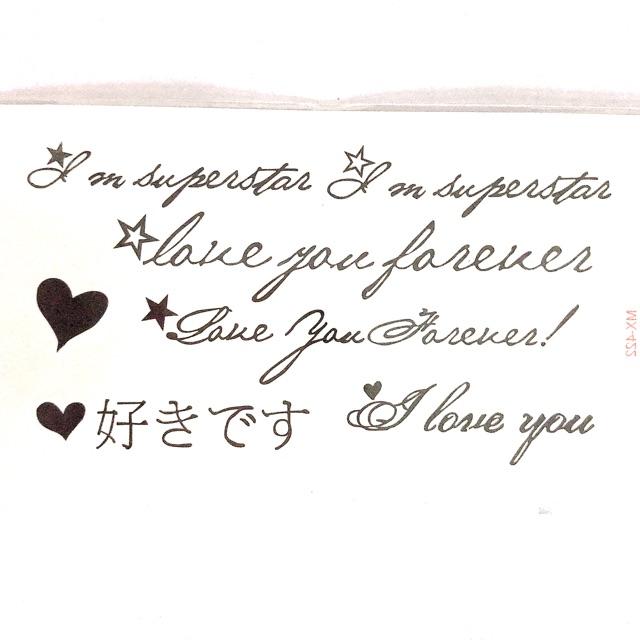 I m superstar I m superstar
love you forever
Love You Forever!
好きです I love you
MX-422